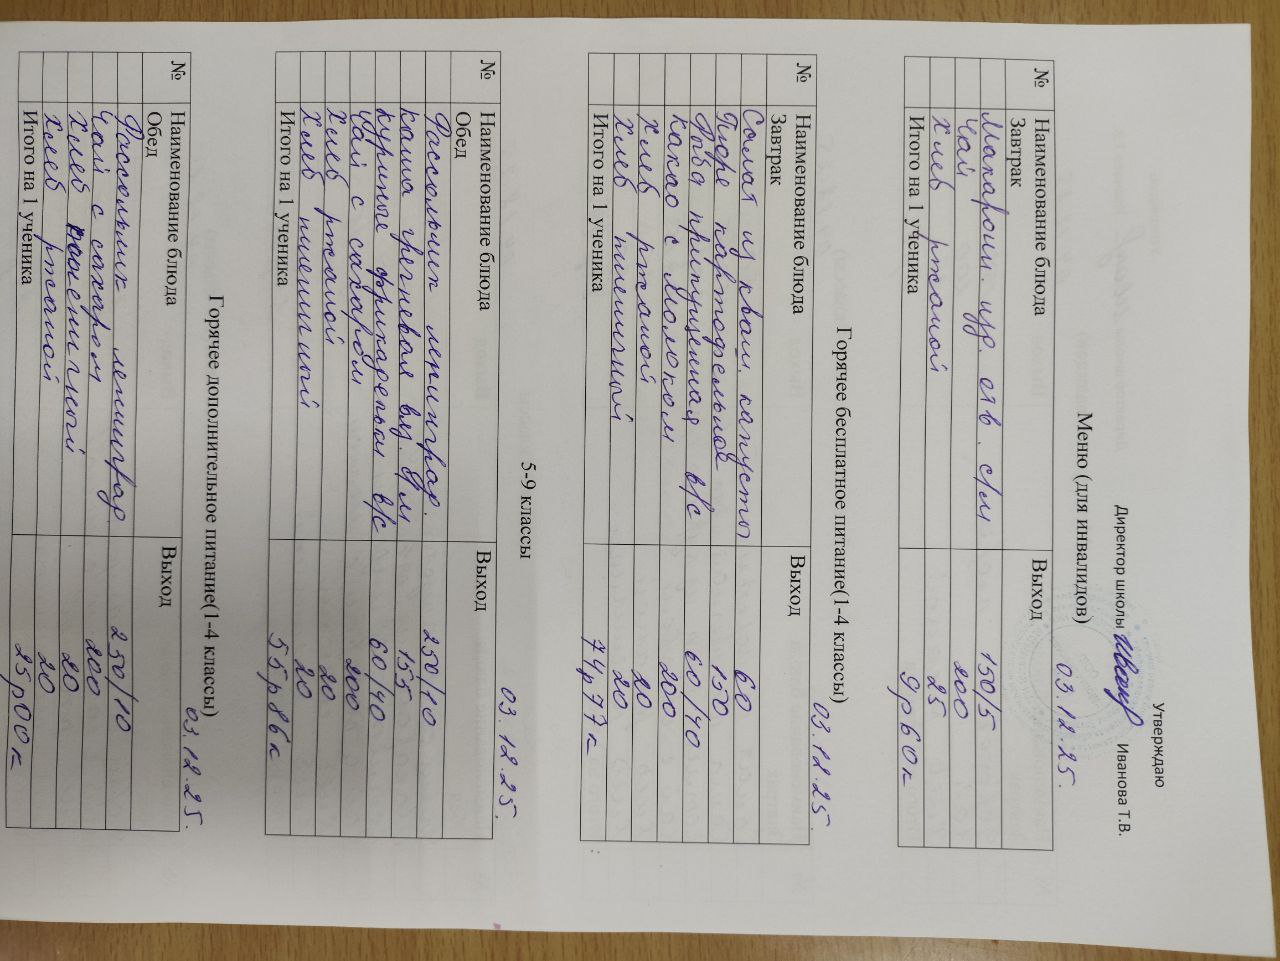 Утверждаю
Директор школы Иванова Т.В.
Меню (для инвалидов)
03.12.25.
№ Наименование блюда Выход
Завтрак
Макарон. изд. отв. с/м 150/5
Чай 200
Хлеб ржаной 25
Итого на 1 ученика 9р60к
Горячее бесплатное питание(1-4 классы)
03.12.25.
№ Наименование блюда Выход
Завтрак
Салат из кваш. капусты 60
Пюре картофельное 150
Рыба припущенная в/с 60/40
Какао с молоком 200
Хлеб ржаной 20
Хлеб пшеничный 20
Итого на 1 ученика 74р77к
5-9 классы
03.12.25.
№ Наименование блюда Выход
Обед
Рассольник ленинград. 250/10
Каша гречневая вяз. с/м 155
Куриные фрикадельки в/с 60/40
Чай с сахаром 200
Хлеб ржаной 20
Хлеб пшеничный 20
Итого на 1 ученика 55р86к
Горячее дополнительное питание(1-4 классы)
03.12.25.
№ Наименование блюда Выход
Обед
Рассольник ленинград. 250/10
Чай с сахаром 200
Хлеб пшеничный 20
Хлеб ржаной 20
Итого на 1 ученика 25р00к